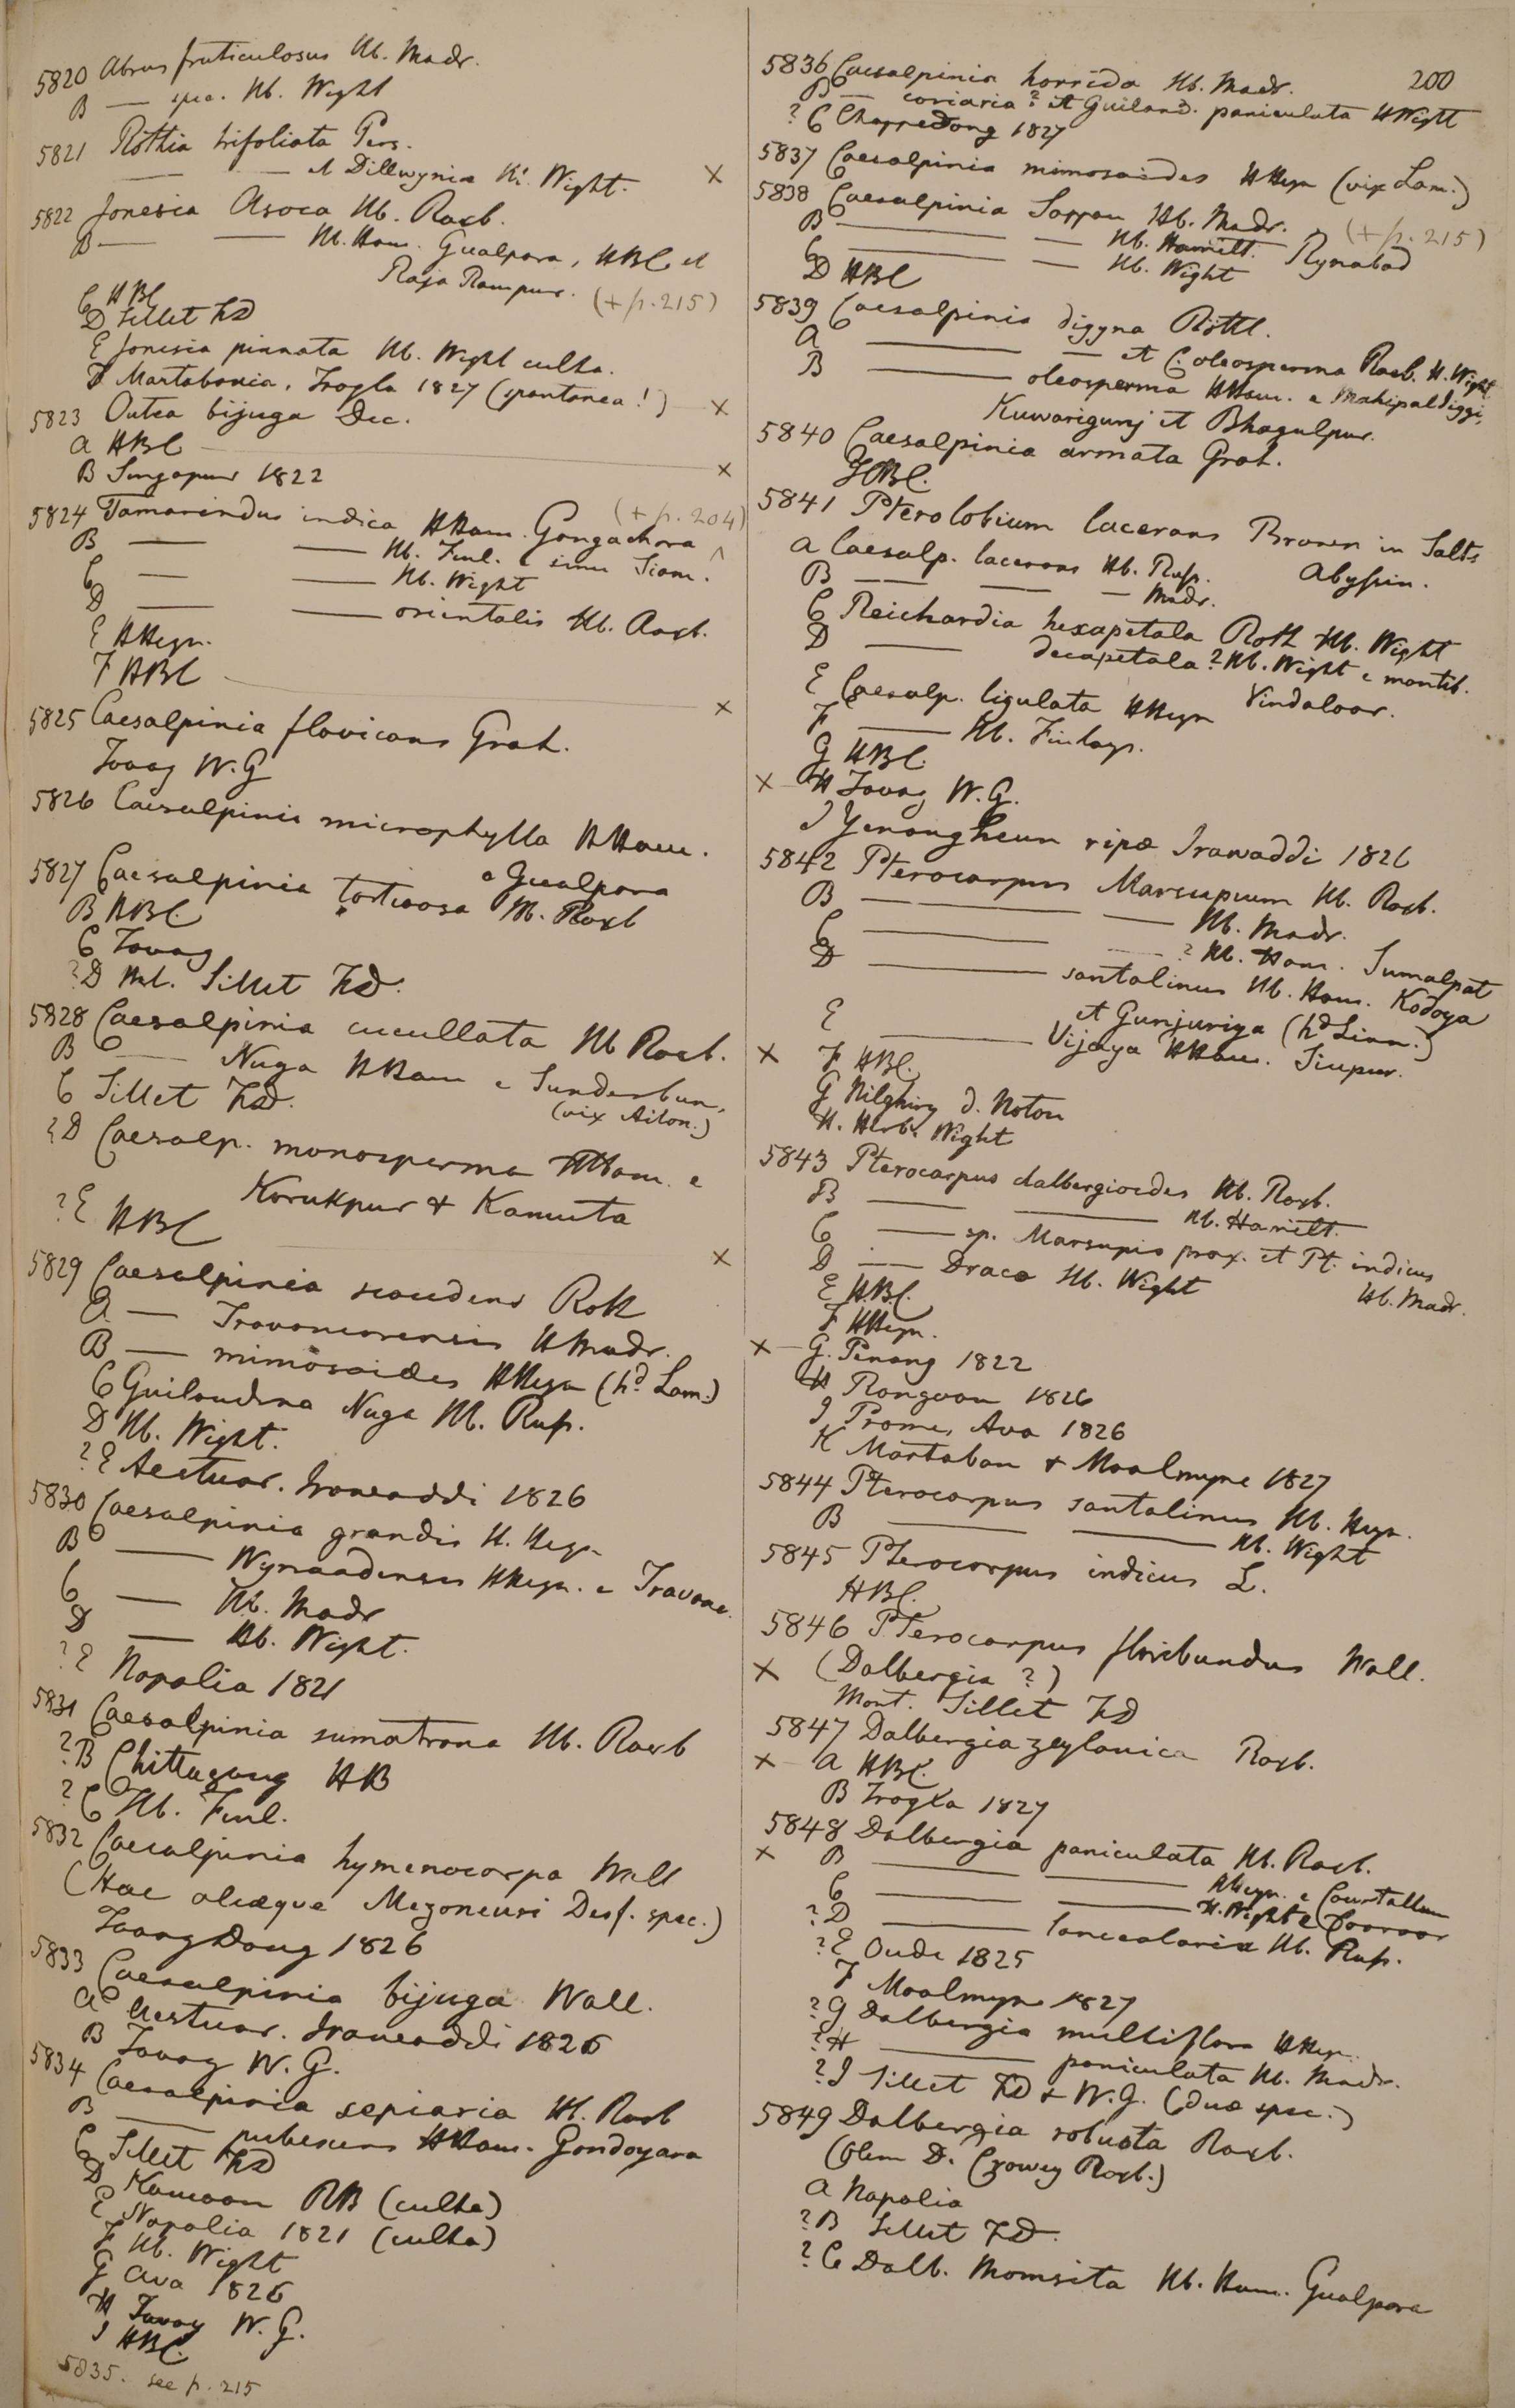 5820 Abrus fruticulosus Hb. Madr.
B — spec. Hb. Wight
5821 Rothia trifoliata Pers.
— — et Dillwynia Hb. Wight. X
5822 Jonesia Asoca Hb. Roxb.
B — — Hb. Ham. Gualpara, HBC et
Raja Rampur. (+ p. 215)
C HBC
D Sillet FD
E Jonesia pinnata Hb. Wight culta.
F Martabania, Trogla 1827 (spontanea!) — X
5823 Outea bijuga Dec.
A HBC — X
B Singapur 1822
5824 Tamarindus indica HHam. Gongachora (+ p. 204)
B — — Hb. Finl. e sinu Siam.
C — — Hb. Wight
D — — orientalis Hb. Roxb.
E HHeyn.
F HBC — X
5825 Caesalpinia flavicans Grah.
Tavoy W.G
5826 Caesalpinia microphylla HHam.
e Gualpara
5827 Caesalpinia tortuosa Hb. Roxb
B HBC
C Tavoy
?D Mt. Sillet FD.
5828 Caesalpinia cucullata Hb Roxb.
B — Nuga HHam e Sunderbun,
(vix Aiton.)
C Sillet FD.
?D Caesalp. monosperma HHam. e
Korukpur & Kamuta
?E HBC — X
5829 Caesalpinia scandens Roth
A — Travancorensis HMadr.
B — mimosoides HHeyn (hd. Lam.)
C Guilandina Nuga Hb. Rusp.
D Hb. Wight.
?E Aestuar. Irawaddi 1826
5830 Caesalpinia grandis H. Heyn
B — Wynaadensis HHeyn. e Travanc.
C — Hb. Madr
D — Hb. Wight.
?E Napalia 1821
5831 Caesalpinia sumatrana Hb. Roxb
?B Chittagong HB
?C Hb. Finl.
5832 Caesalpinia hymenocarpa Wall
(Hae aliaeque Mezoneuri Desf. spec.)
Taong Dong 1826
5833 Caesalpinia bijuga Wall.
A Aestuar. Irawaddi 1826
B Tavoy W. G.
5834 Caesalpinia sepiaria Hb. Roxb
B — pubescens HHam. Gondoyara
C Sillet FD
D Kamaon RB (culta)
E Napalia 1821 (culta)
F Hb. Wight
G Ava 1826
H Tavoy W. G.
I HBC.
5835. see p. 215
200
5836 Caesalpinia horrida Hb. Madr.
B — coriaria? et Guiland. paniculata HWight
?C Chappedong 1827
5837 Caesalpinia mimosoides HHeyn (vix Lam.)
5838 Caesalpinia Sappan Hb. Madr. (+ p. 215)
B — — Hb. Hamilt. Rynabad
C — — Hb. Wight
D HBC
5839 Caesalpinia digyna Rottl.
A — — et C. oleosperma Roxb. H. Wight
B — oleosperma HHam. e Mahipaldiggi,
Kuwarigunj et Bhagulpur.
5840 Caesalpinia armata Grah.
HBC.
5841 Pterolobium lacerans Brown in Salts
Abyssin.
A Caesalp. lacerans Hb. Rusp.
B — — — Madr.
C Reichardia hexapetala Roth Hb. Wight
D — decapetala? Hb. Wight e montib.
Vindaloor.
E Caesalp. ligulata HHeyn
F — Hb. Finlays.
G HBC.
X H Tavoy W. G.
I Yenangheun ripa Irawaddi 1826
5842 Pterocarpus Marsupium Hb. Roxb.
B — — Hb. Madr.
C — — ? Hb. Ham. Sumalpat
D — santalinus Hb. Ham. Kodoya
et Gunjuriya (hd Linn.)
E — Vijaya HHam. Siupur.
X F HBC.
G Nilghiry d. Noton
H. Herb. Wight
5843 Pterocarpus dalbergioides Hb. Roxb.
B — — Hb. Hamilt.
C — sp. Marsupio prox. et Pt. indicus
Hb. Madr.
D — Draco Hb. Wight
E H.B.C.
F HHeyn.
X G. Penang 1822
H Rangoon 1826
I Prome, Ava 1826
K Martaban & Moalmyne 1827
5844 Pterocarpus santalinus Hb. Heyn.
B — — Hb. Wight
5845 Pterocarpus indicus L.
HBC.
5846 Pterocarpus floribundus Wall.
X (Dalbergia?)
Mont. Sillet FD
5847 Dalbergia zeylanica Roxb.
X A HBC.
B Trogla 1827
5848 Dalbergia paniculata Hb. Roxb.
X B — — HHeyn. e Courtallum
C — — H. Wight e
?D — lanceolaria Hb. Rusp.
?E Oude 1825
F Moalmyn 1827
?G Dalbergia multiflora HHeyn.
?H — paniculata Hb. Madr.
?I Sillet FD & W.G. (duae spec.)
5849 Dalbergia robusta Roxb.
(olim D. Crowey Roxb.)
A Napalia
?B Sillet FD.
?C Dalb. Momsita Hb. Ham. Gualpara